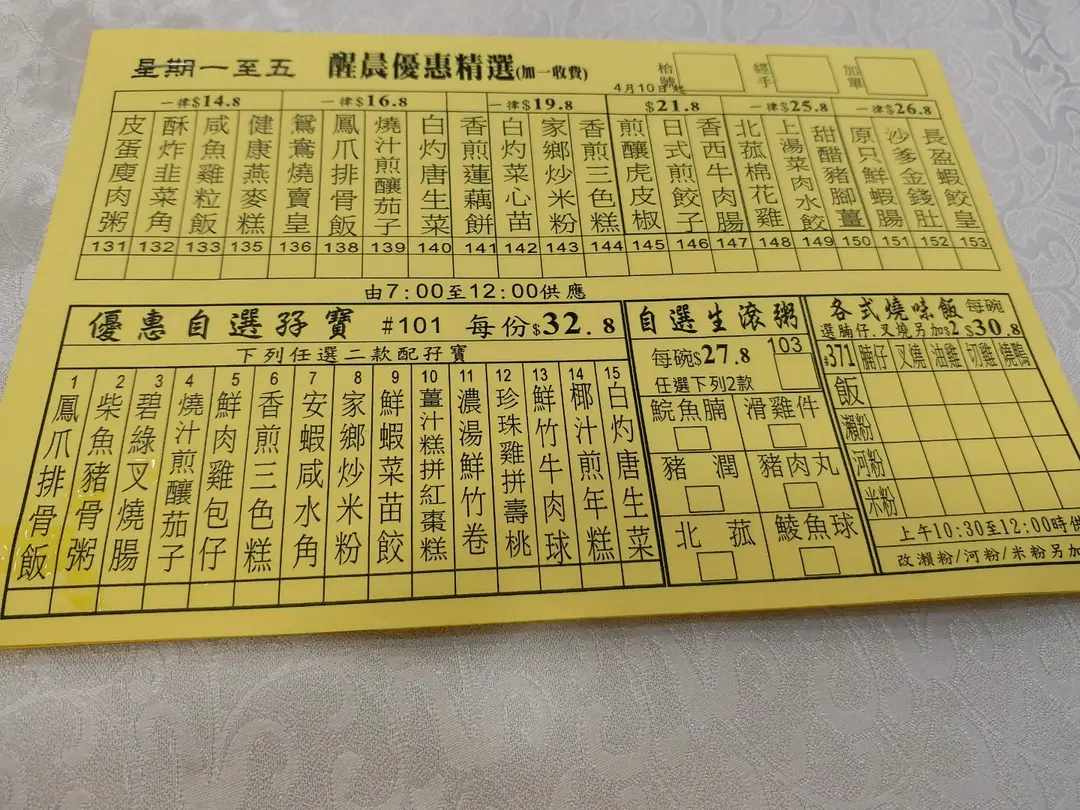 星期一至五 醒晨優惠精選(加一收費) 枱號 經手 加單
4月10日起
一律$14.8 一律$16.8 一律$19.8 $21.8 一律$25.8 一律$26.8
皮蛋廋肉粥 131
酥炸韭菜角 132
咸魚雞粒飯 133
健康燕麥糕 135
鴛鴦燒賣皇 136
鳳爪排骨飯 138
燒汁煎釀茄子 139
白灼唐生菜 140
香煎蓮藕餅 141
白灼菜心苗 142
家鄉炒米粉 143
香煎三色糕 144
煎釀虎皮椒 145
日式煎餃子 146
香西牛肉腸 147
北菇棉花雞 148
上湯菜肉水餃 149
甜醋豬腳薑 150
原只鮮蝦腸 151
沙爹金錢肚 152
長盈蝦餃皇 153
由7:00至12:00供應
優惠自選孖寶 #101 每份$32.8
下列任選二款配孖寶
1 鳳爪排骨飯
2 柴魚豬骨粥
3 碧綠叉燒腸
4 燒汁煎釀茄子
5 鮮肉雞包仔
6 香煎三色糕
7 安蝦咸水角
8 家鄉炒米粉
9 鮮蝦菜苗餃
10 薑汁糕拼紅棗糕
11 濃湯鮮竹卷
12 珍珠雞拼壽桃
13 鮮竹牛肉球
14 椰汁煎年糕
15 白灼唐生菜
自選生滾粥
每碗$27.8 103
任選下列2款
鯇魚腩 滑雞件
豬潤 豬肉丸
北菇 鯪魚球
各式燒味飯 每碗
選腩仔.叉燒另加$2 $30.8
#371 腩仔 叉燒 油雞 切雞 燒鴨
飯
瀨粉
河粉
米粉
上午10:30至12:00時供
改瀨粉/河粉/米粉另加